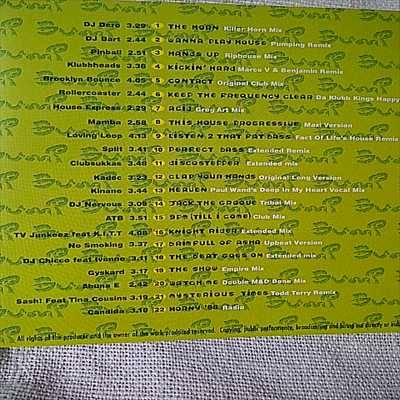 DJ Dero 3.29 1 THE HORN Killer Horn Mix
DJ Dart 2.44 2 WANNA PLAY HOUSE Pumping Remix
Pinball 2.51 3 HANDS UP Riphouse Mix
Klubbheads 4.38 4 KICKIN' HARD Marco V & Benjamin Remix
Brooklyn Bounce 4.05 5 CONTACT Original Club Mix
Rollercoaster 2.44 6 KEEP THE FREQUENCY CLEAR Da Klubb Kings Happy
House Express 2.29 7 ACID Greg Art Mix
Mamba 2.58 8 THIS HOUSE PROGRESSIVE Maxi Version
Loving Loop 4.13 9 LISTEN 2 THAT FAT BASS Fact Of Life's House Remix
Split 3.41 10 PERFECT BASS Extended Remix
Clubsukkas 3.48 11 DISCOSTEPPER Extended mix
Kadoc 3.24 12 CLAP YOUR HANDS Original Long Version
Kinane 3.44 13 HEAVEN Paul Wand's Deep In My Heart Vocal Mix
DJ Nervous 3.06 14 JACK THE GROOVE Tribal Mix
ATB 3.51 15 9PM (TILL I COME) Club Mix
TV Junkeez feat K.I.T.T 16 KNIGHT RIDER Extended Mix
No Smoking 3.37 17 UpBeat Version
DJ Chicco feat Ivonne 18 THE BEAT GOES ON Extended mix
Gyskard 3.17 19 THE SHOW Empire Mix
20 WATCH ME Double M&D Bone Mix
Sash! Feat Tina Cousins 3.19 21 MYSTERIOUS TIMES Todd Terry Remix
Candida 3.16 22 HORNY '98 Radio
All rights of the producer and the owner of the work produced reserved. Copying, public performance, broadcasting and hiring out directly or